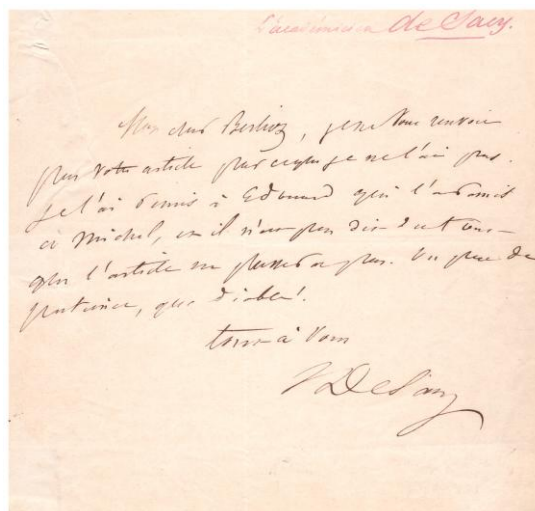 L'académicien de Sacy.
Mon cher Berlioz, je ne vous renvoie
pas votre article parceque je ne l'ai pas.
Je l'ai remis à Edouard qui l'a remis
à Michel, il n'a pas
que l'article ne passera pas. Un peu de
patience, que diable!
tout à vous
DeSacy